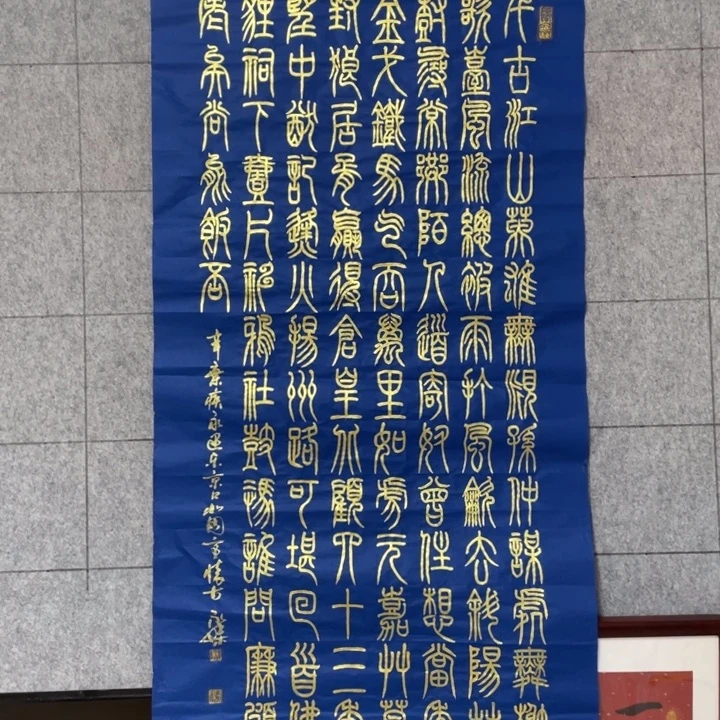 千古江山英雄無覓孫仲謀處舞榭
歌臺風流總被雨打風吹去斜陽艸
樹尋常巷陌人道寄奴曾住想當年
金戈鐵馬气吞萬里如虎元嘉艸草
封狼居胥贏得倉皇北顧四十三年
望中猶記烽火揚州路可堪回首佛
狸祠下一片神鴉社鼓馮誰問廉頗
老矣尚能飯否
辛棄疾永遇乐京口北固亭懷古